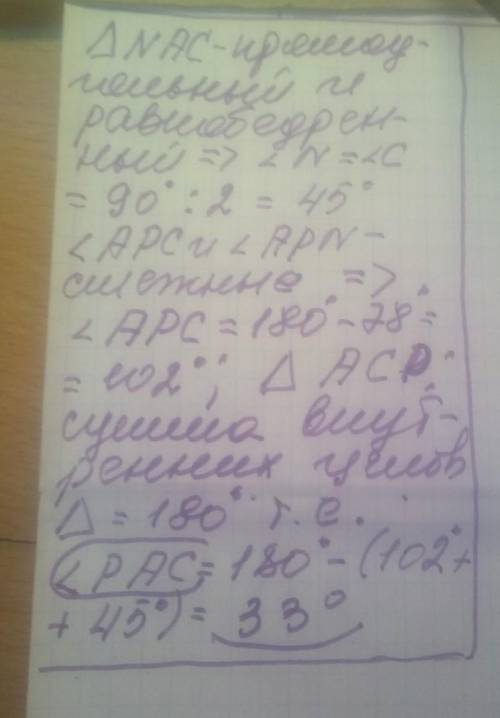 Δ NAC - прямоу-
гольный и
равнобедрен-
ный => ∠N = ∠C
= 90° : 2 = 45°
∠APC и ∠APN -
смежные =>
∠APC = 180° - 78° =
= 102°; Δ ACP:
сумма внут-
ренних углов
Δ = 180° т.е.
∠PAC = 180° - (102° +
+ 45°) = 33°